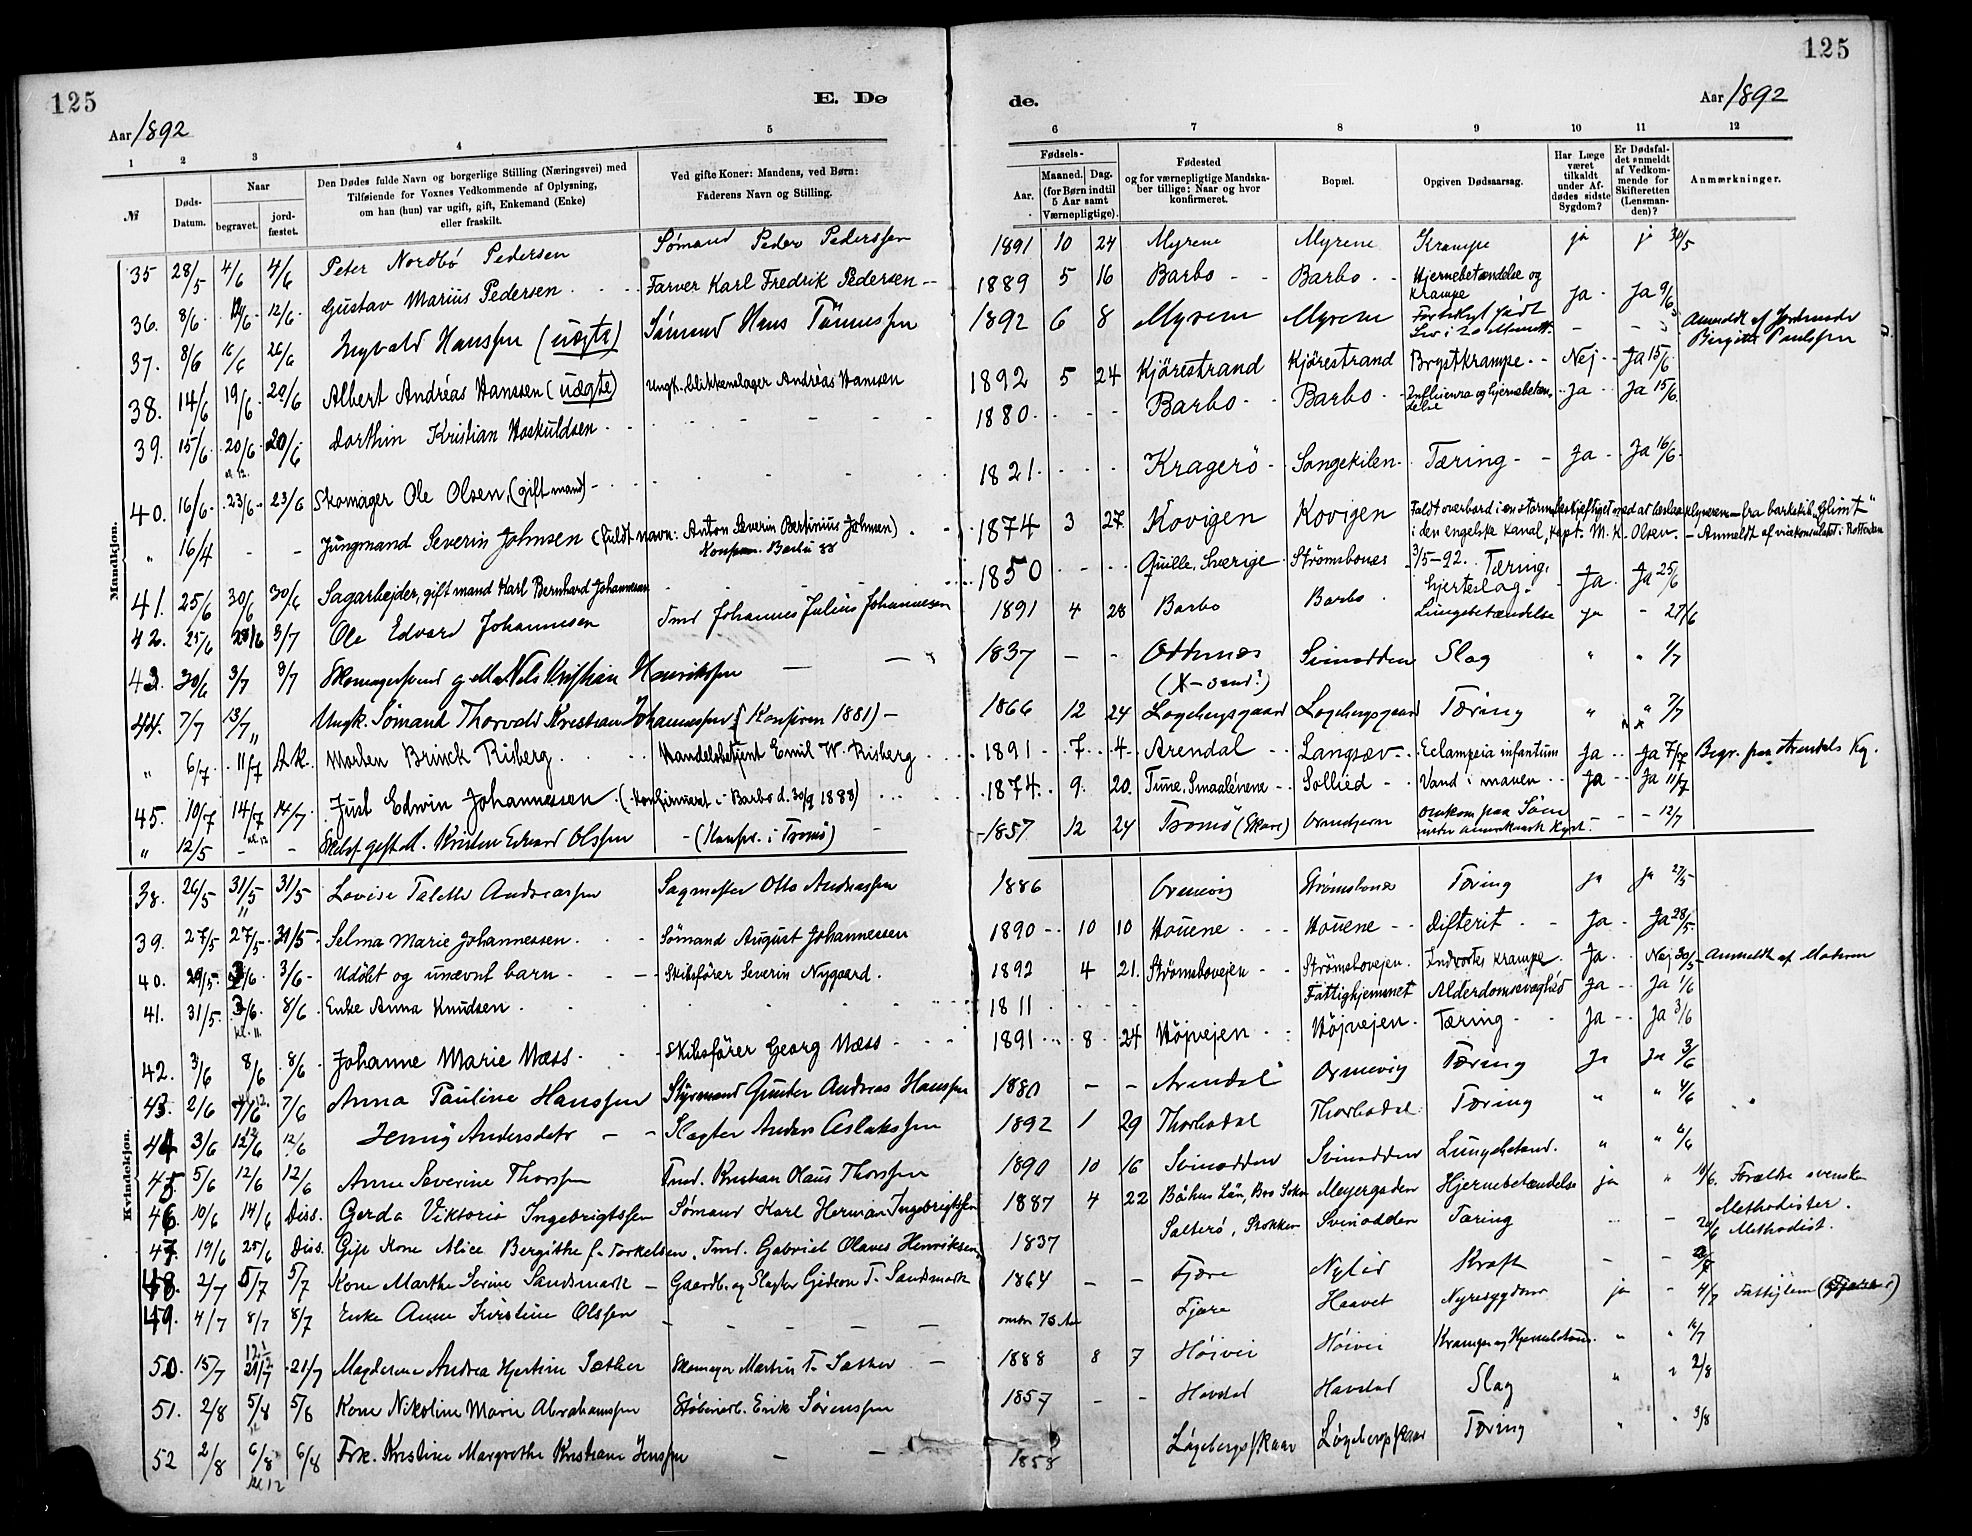 125
E. Dø
Aar 1892
1 2 3 4 5
№
Døds-Datum.
Naar
begravet.
jord-fæstet.
Den Dødes fulde Navn og borgerlige Stilling (Næringsvei) med
Tilføiende for Voxnes Vedkommende af Oplysning,
om han (hun) var ugift, gift, Enkemand (Enke)
eller fraskilt.
Ved gifte Koner: Mandens, ved Børn:
Faderens Navn og Stilling.
de.
125
Aar 1892
6 7 8 9 10 11 12
Fødsels-
Aar.
Maaned. Dag.
(for Børn indtil
5 Aar samt
Værnepligtige).
Fødested
og for værnepligtige Mandska-
ber tillige: Naar og hvor
konfirmeret.
Bopæl.
Opgiven Dødsaarsag.
Har Læge
været
tilkaldt
under Af-
dødes sidste
Sygdom?
Er Dødsfal-
det anmeldt
af Vedkom-
mende for
Skifteretten
(Lensman-
den)?
Anmærkninger.
Mandkjøn.
35 28/5 4/6 4/6 Peter Nordbø Pedersen Sømand Peder Pederssen 1891 10 24 Myrene Myrene Krampe ja ja 30/5
36. 8/6 12/6 12/6 Gustav Marius Pedersen Farver Karl Fredrik Pedersen 1889 5 16 Barbo Barbo Hjernebetændelse og Krampe Ja Ja 9/6
37. 8/6 16/6 26/6 Ingvald Hanssen (uægte) Sømand Hans Tønnessen 1892 6 8 Myrene Myrene Anmeldt af Jordmoder Birgitte Paulssen
38. 14/6 19/6 20/6 Albert Andréas Hanssen (uægte) Ungk. blikkenslager Andréas Hanssen 1892 5 24 Kjörestrand Kjörestrand Brystkrampe Nej Ja 15/6
39. 15/6 20/6 20/6 Dorthin Kristian Hoskuldsen 1880 Barbo Barbo Influenza og hjernebetændelse Ja Ja 15/6
40. 16/6 23/6 23/6 Skomager Ole Olsen, (gift mand) 1821 Kragerö Songekilen Tæring Ja Ja 16/6
" 16/4 - - Jungmand Severin Johnsen (fuldt navn: Anton Severin Bertinius Johnsen) Konfirm. Barbu 88 1874 3 27 Kovigen Kovigen Faldt overbord i en storm beskjæftiget med at beslaa klyveren fra barkskib "Glimt" i den engelske kanal, kapt. M. K. Olsen. - Anmeldt af visekonsulatet i Rotterdam 3/5-92.
41. 25/6 30/6 30/6 Sagarbejder, gift mand Karl Bernhard Johannesen 1850 Quille, Sverige Strömsbonæs Tæring, hjerteslag Ja Ja 25/6
42. 25/6 28/6 3/7 Ole Edvard Johannesen Tmd Johannes Julius Johannesen 1891 4 28 Barbo Barbo Lungebetændelse ja - 27/6
43. 30/6 3/7 3/7 Nels Kristian Henrikssen 1837 - - Ottenæs Svinodden Slag " " 1/7
44. 7/7 13/7 " Ungk. Sømand Thorvald Kristian Johannessen (Konfirm 1881) 1866 12 24 Løgebergsgaard Løgebergsgaard Tæring " " 7/7
" 6/7 11/7 A.K. Morten Brinck Risberg Handelsbetjent Emil W. Risberg 1891 7 4 Arendal Langsæv Eclampsia infantum Ja Ja 7/7 Begr. paa Arendals Kg.
45. 10/7 14/7 14/7 Just Edwin Johannessen (konfirmeret i Barbo d. 30/9 1888) 1874 9 20 Tune, Smaalénene Sollied Vand i maven Ja Ja 11/7
" 12/5 - - gift M. Kristen Edvard Olssen (Konfir. i Tromø) 1857 12 24 Tromø (Skare) Omkom paa Søen under amerikansk Kyst - - 12/7
Kvindekjøn.
38. 26/5 31/5 31/5 Lovise Talette Andreassen Sagmester Otto Andreassen 1886 Ormevig Strømsbonæs Tæring ja ja 27/5
39. 27/5 27/5 31/5 Selma Marie Johannessen Sömand August Johannessen 1890 10 10 Houene Houene Difterit Ja Ja 28/5
40. 29/5 3/6 3/6 Udöbt og unævnt barn Skibsförer Severin Nygaard 1892 4 21 Strömsbovejen Strömsbovejen Indvortes krampe Ja Nej 30/5 Anmeldt af Moderen
41. 31/5 3/6 8/6 Enke Anna Knudsen 1811 Fattighjemmet Alderdomssvaghed Ja Ja 1/6
42. 3/6 8/6 8/6 Johanne Marie Næss Skibsfører Georg Næss 1891 8 24 Höjvejen Höjvejen Tæring Ja Ja 3/6
43. 2/6 7/6 7/6 Anna Pauline Hanssen Styrmand Gunder Andreas Hanssen 1880 - - Arendal Ormevig Tæring Ja Ja 3/6
44 3/6 12/6 12/6 Jenny Andersdatr Slagter Anders Aslakssen 1892 1 29 Thorbodal Thorbodal Tæring " " 4/6
45 5/6 12/6 12/6 Anne Severine Thorssen Tmd. Kristian Olaus Thorssen 1890 10 16 Svinodden Svinodden Lungebetænd. " " 6/6
46 10/6 14/6 Diss. Gerda Viktoria Ingebrigtssen Sømand Karl Herman Ingebrigtssen 1887 4 22 Båhus Län, Bro Sokn Meyergaden Hjernebetændelse ja " 10/6. Forældre svenske Methodister.
47 19/6 25/6 Diss. Gift Kone Alice Bergithe f. Torkelsen Tmd. Gabriel Olaves Henriksen 1837 Salterø, Stokken Svinodden Tæring - - 20/6 Methodist.
48. 2/7 5/7 5/7 Kone Marthe Serine Sandsmark Gaardb. og Slagter Gideon T. Sandsmark 1864 - - Fjære Nylid Kræft - -
49. 4/7 8/7 8/7 Enke Anne Kirstine Olssen omtr 75 Aar Fjære Haavet Nyresygdom ja - 4/7
50. 15/7 21/7 21/7 Magderene Andrea Hjertine Sæther Skomager Martin T. Sæther 1888 8 7 Høivei Høivei Krampe og Hjernebetænd. " " 16/7
51. 2/8 5/8 5/8 Kone Nikoline Marie Abrahamssen Støberiarb. Erik Sørenssen 1857 - Havstad Havstad Slag " " 2/8
52 2/8 6/8 6/8 Frk. Kristine Margrethe Kristiane Jenssen 1858 Løgebergskaar Løgebergskaar Tæring " " 3/8
kl 12